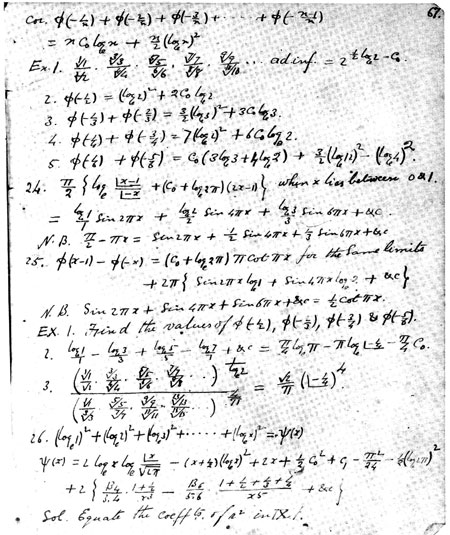 67.
Cor. φ(-1/n) + φ(-2/n) + φ(-3/n) + ······ + φ(-(n-1)/n)
= n C₀ logₑ n + n/2 (logₑ n)²
Ex. 1. ad inf. = 2^(½ log 2 - C₀)
2. φ(-½) = (log 2)² + 2C₀ log 2
3. φ(-⅓) + φ(-⅔) = 3/2 (log 3)² + 3C₀ log 3.
4. φ(-¼) + φ(-¾) = 7(log 2)² + 6C₀ log 2.
5. φ(-⅙) + φ(-⅚) = C₀(3 log 3 + 4 log 2) + 3/2 (log 12)² - (log 4)².
24. π/2 { log + (C₀ + log 2π)(2x-1) } when x lies between 0 & 1.
= log 1/1 sin 2πx + log 2/2 sin 4πx + log 3/3 sin 6πx + &c
N.B. π/2 - πx = sin 2πx + ½ sin 4πx + ⅓ sin 6πx + &c
25. φ(x-1) - φ(-x) = (C₀ + log 2π) π cot πx for the same limits
+ 2π { sin 2πx log 1 + sin 4πx log 2 + &c }
N.B. Sin 2πx + Sin 4πx + Sin 6πx + &c = ½ cot πx.
EX. 1. Find the values of φ(-¼), φ(-⅓), φ(-¾) & φ(-⅚).
2. log 1/1 - log 3/3 + log 5/5 - log 7/7 + &c = π/4 log π - π log - π/4 C₀.
3.
26. (log 1)² + (log 2)² + (log 3)² + ······ + (log x)² = ψ(x)
ψ(x) = 2 log x log - (x + ½)(log x)² + 2x + ½ C₀² + C₁ - π²/24 - ½ (log 2π)²
+ 2 { + &c }
Sol. Equate the coeffts. of n² in IX. 1.